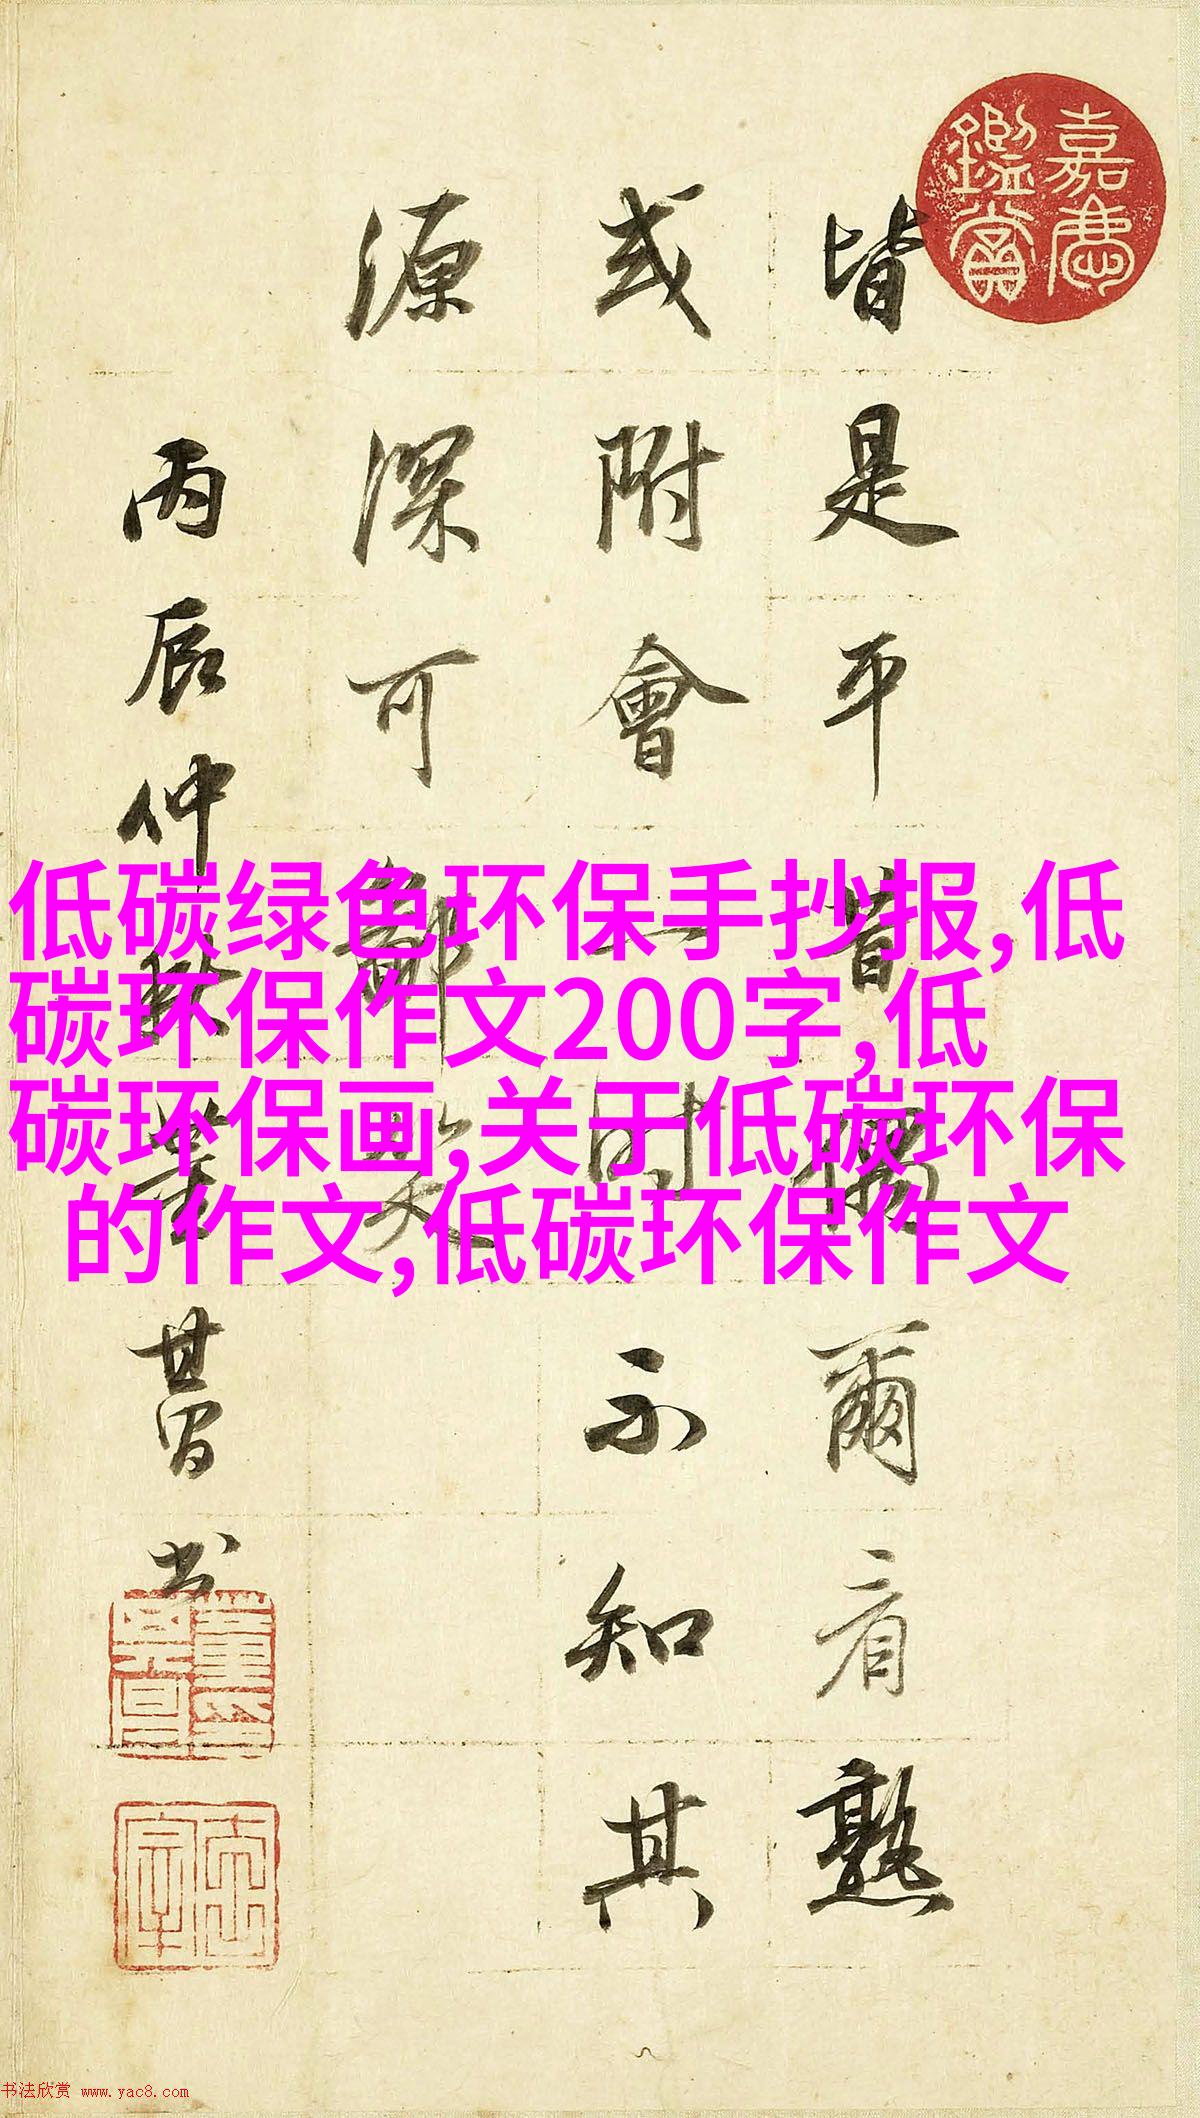 嘉慶
鑑賞
皆是平昔獨爾看熟
或附會一時不知其
源深可鄙笑
丙辰仲董其昌书
低碳绿色环保手抄报,低
碳环保作文200字,低
碳环保画,关于低碳环保
的作文,低碳环保作文
书法欣赏 www.yac8.com